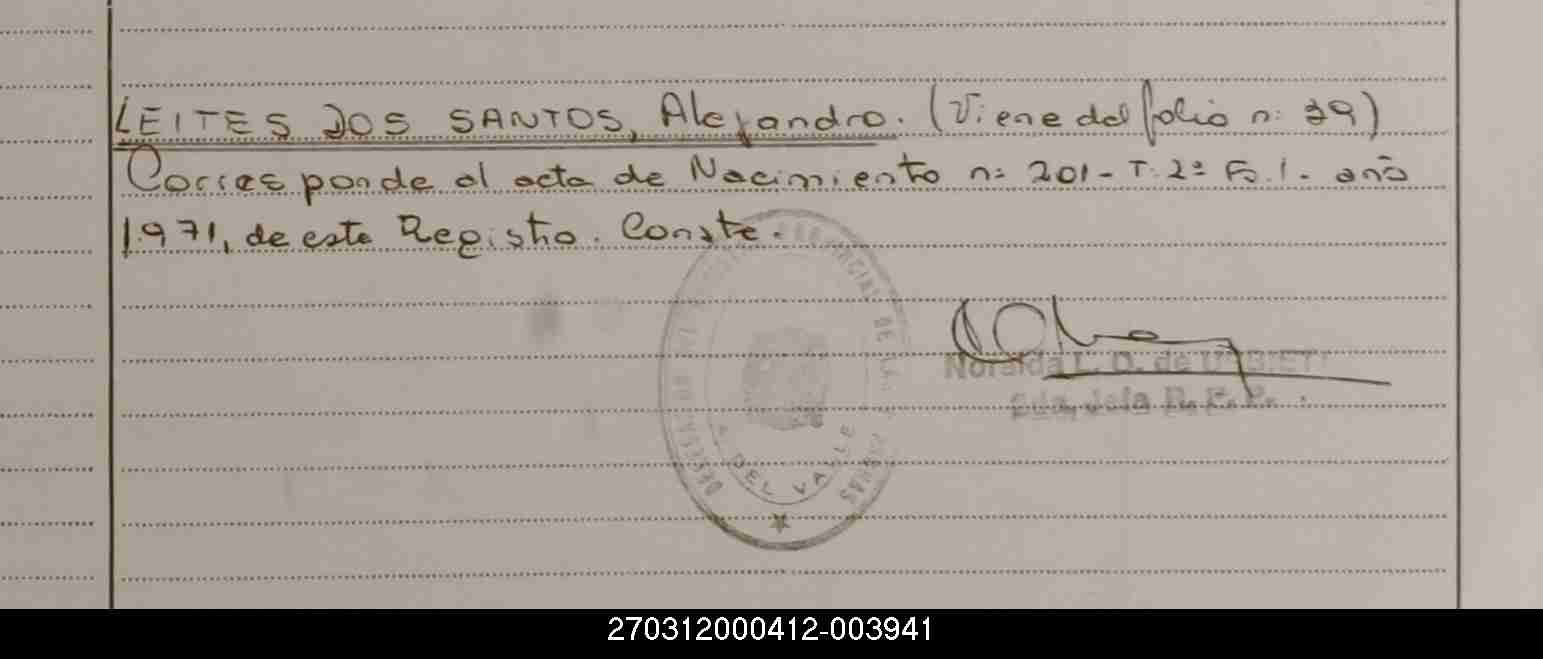 LEITES DOS SANTOS, Alejandro. (Viene del folio n: 39)
Corresponde al acta de Nacimiento n: 201- T. 2º Fo. 1. año
1971, de este Registro. Conste.
Noralda L. D. de
2da. Jefa R. P. P.
DEL VALLE
270312000412-003941